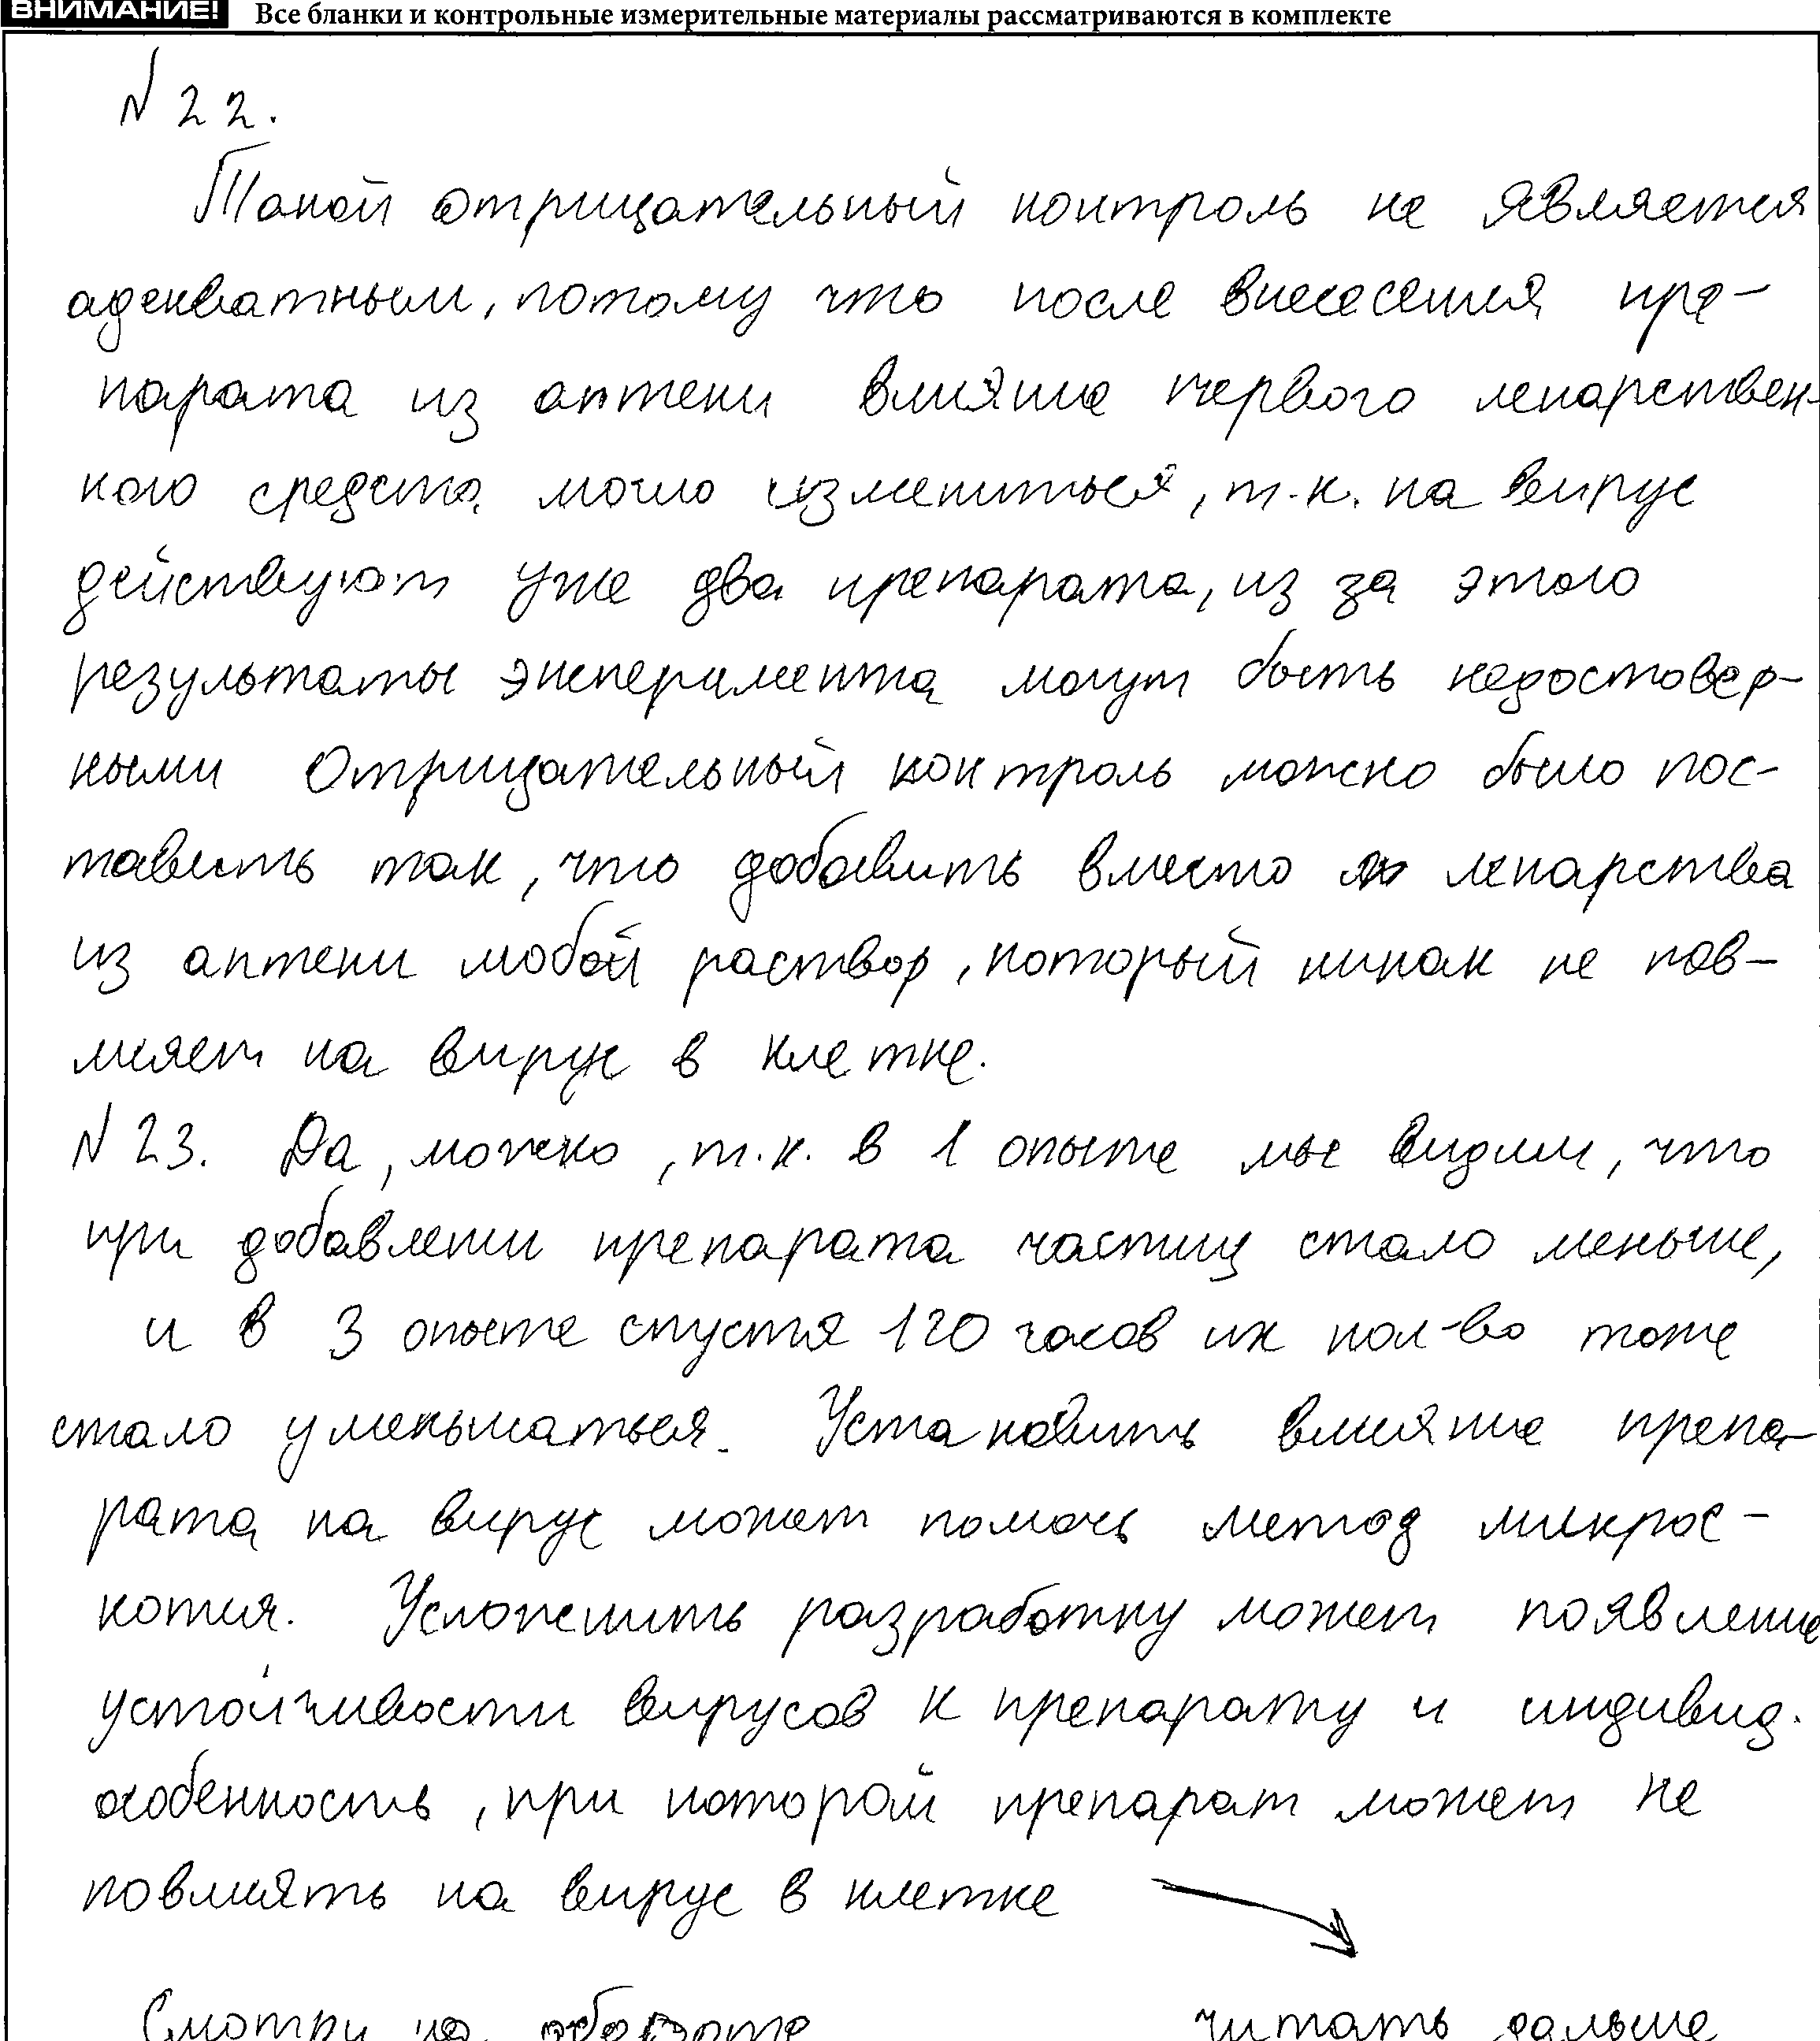 ВНИМАНИЕ! Все бланки и контрольные измерительные материалы рассматриваются в комплекте
N 22.
Такой отрицательный контроль не является
адекватным, потому что после внесесения пре-
парата из аптеки влияние первого лекарствен-
ного средства могло измениться, т.к. на вирус
действуют уже два препарата, из за этого
результаты эксперимента могут быть недостовер-
ными Отрицательный контроль можно было пос-
тавить так, что добавить вместо лекарства
из аптеки любой раствор, который никак не пов-
лияет на вирус в клетке.
N 23. Да, можно, т.к. в 1 опыте мы видим, что
при добавлении препарата частиц стало меньше,
и в 3 опыте спустя 120 часов их кол-во тоже
стало уменьшаться. Установить влияние препа-
рата на вирус может помочь метод микрос-
копия. Усложнить разработку может появление
устойчивости вирусов к препарату и индивид.
особенность, при которой препарат может не
повлиять на вирус в клетке
Смотри на обороте читать дальше